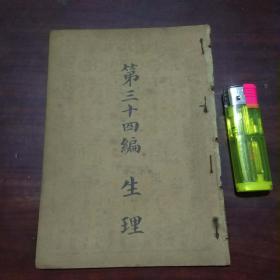 第三十四編 生理